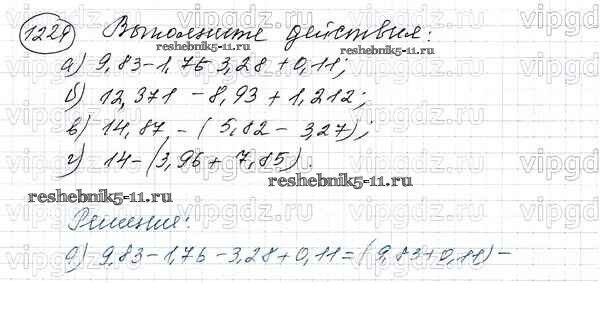 1229 Выполните действия:
а) 9,83-1,76 3,28+0,11;
б) 12,371 - 8,93 + 1,212;
в) 14,87 - (5,82 - 3,27);
г) 14-(3,96 + 7,85).
Решение:
а) 9,83-1,76-3,28+0,11=(9,83+0,11)-
reshebnik5-11.ru
reshebnik5-11.ru
reshebnik5-11.ru
reshebnik5-11.ru
vipgdz.ru
vipgdz.ru
vipgdz.ru